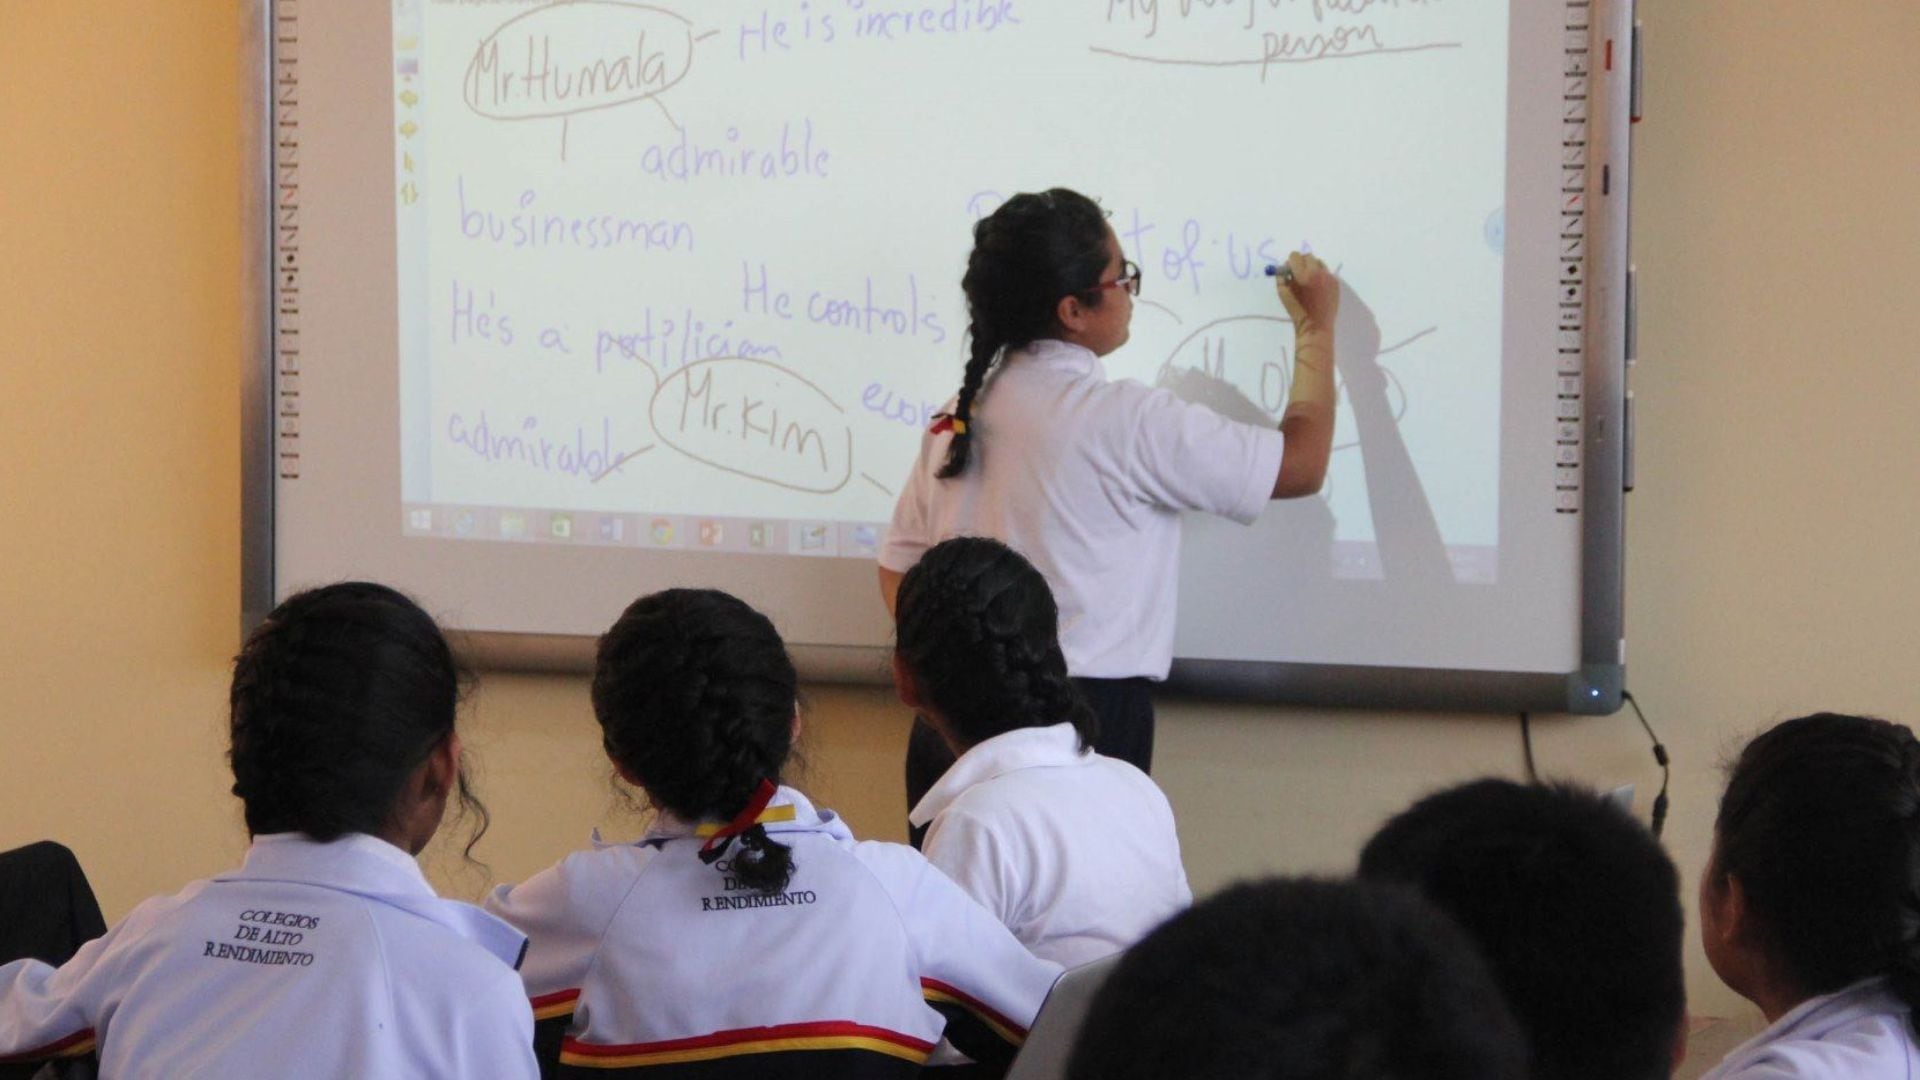 Mr. Humala
He is incredible
person
admirable
businessman
He controls
of U.S
He's a portilician
Mr. Kim
admirable
COLEGIOS
DE ALTO
RENDIMIENTO
RENDIMIENTO